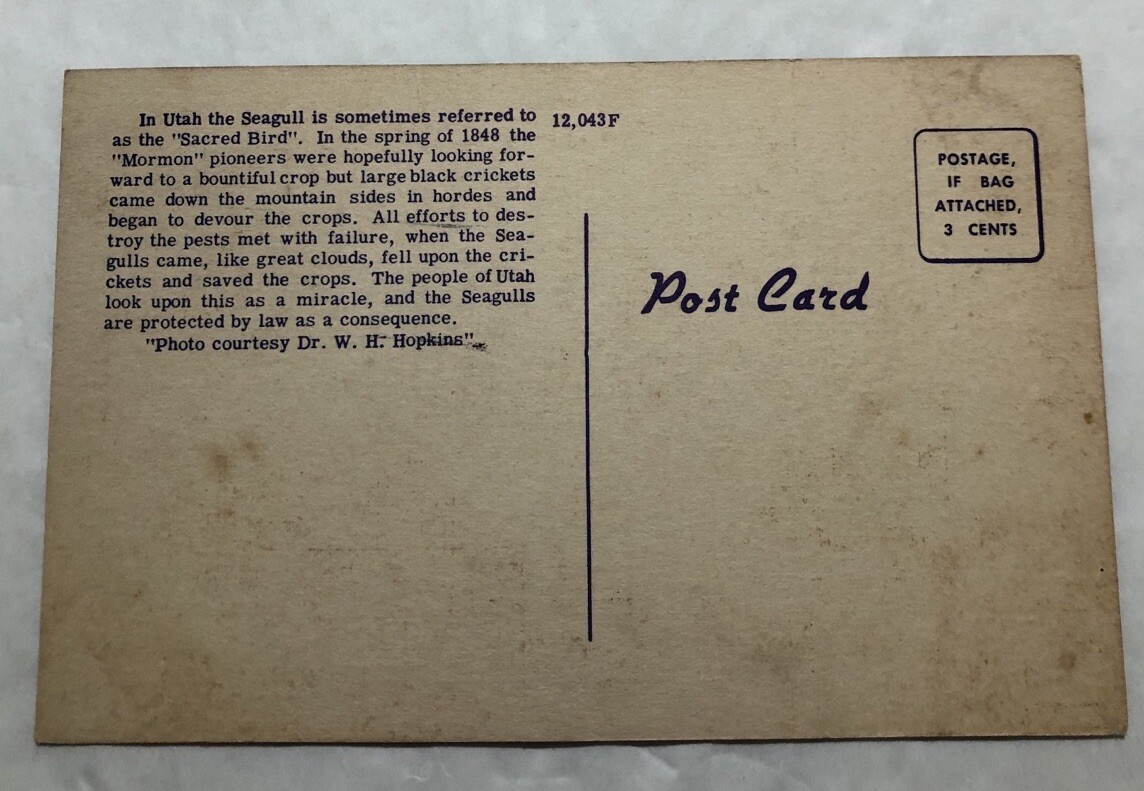 In Utah the Seagull is sometimes referred to
as the "Sacred Bird". In the spring of 1848 the
"Mormon" pioneers were hopefully looking for-
ward to a bountiful crop but large black crickets
came down the mountain sides in hordes and
began to devour the crops. All efforts to des-
troy the pests met with failure, when the Sea-
gulls came, like great clouds, fell upon the cri-
ckets and saved the crops. The people of Utah
look upon this as a miracle, and the Seagulls
are protected by law as a consequence.
"Photo courtesy Dr. W. H. Hopkins"
12,043F
Post Card
POSTAGE,
IF BAG
ATTACHED,
3 CENTS